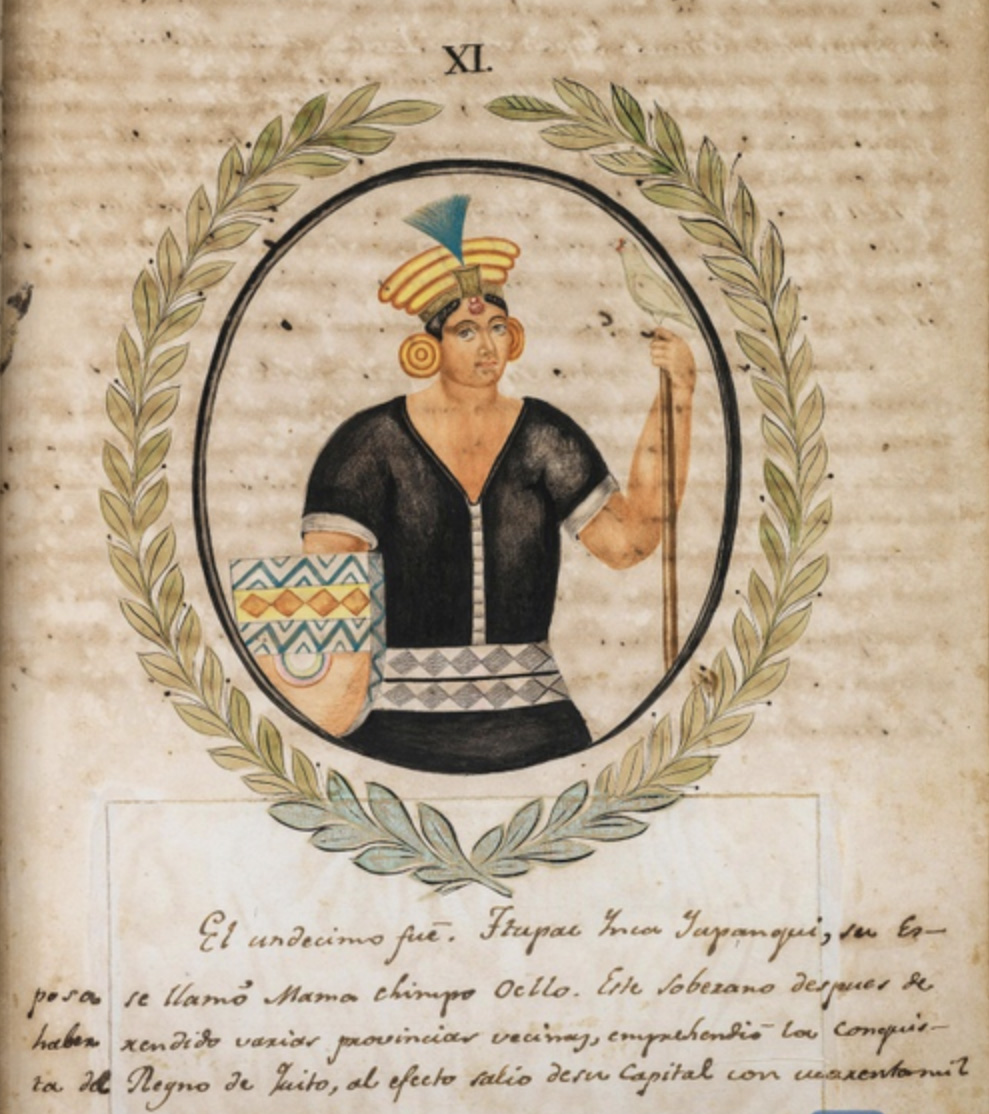 XI.
El undecimo fué. Ftupac Ynca Yupanqui, su Es-
posa se llamó Mama chimpo Ocllo. Este soberano despues de
haber rendido varias provincias vecinas, emprehendió la Conquis-
ta del Reyno de Quito, al efecto salio desu Capital con cuarentamil